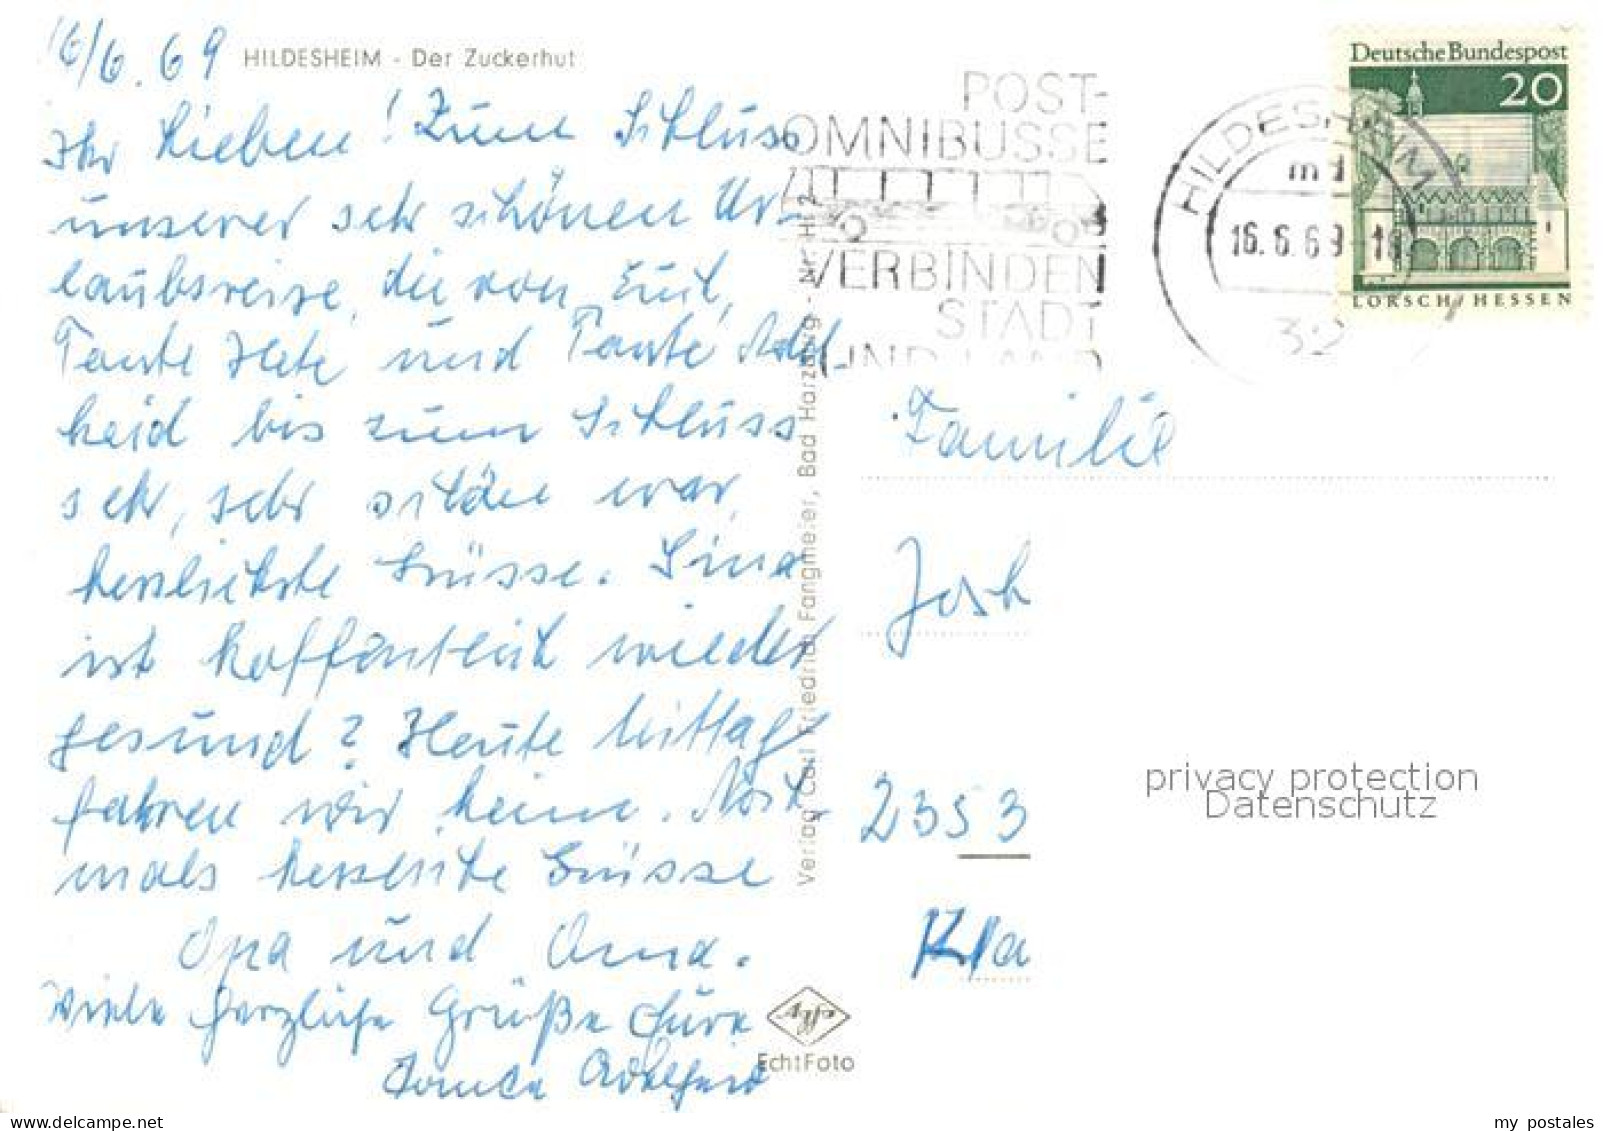 16/6.69
HILDESHEIM - Der Zuckerhut
Ihr Lieben! Zum Schluss
unserer sehr schönen Ur-
laubsreise, die von
Tante Hete und Tante Adel
heid bis zum Schluss
sehr, sehr schön war,
herzlichste Grüsse.
ist hoffentlich wieder
gesund? Heute Mittag
fahren wir heim. Noch
mals herzliche Grüsse
Opa und Oma.
Viele herzliche Grüße Eure
Tante Adelheid
Verlag Carl Friedrich Fangmeier, Bad Harzburg - Nr. Hi 2
EchtFoto
POST-
OMNIBUSSE
VERBINDEN
STADT
UND LAND
HILDESHEIM
16.6.69
Deutsche Bundespost
20
LORSCH/HESSEN
Familie
2353
privacy protection
Datenschutz
my postales